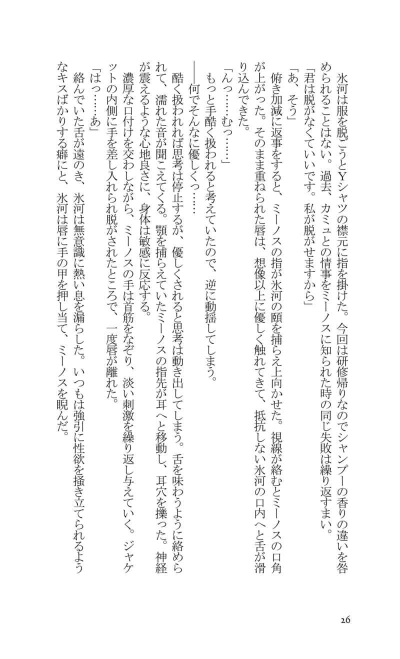 氷河は服を脱ごうとYシャツの襟元に指を掛けた。今回は研修帰りなのでシャンプーの香りの違いを咎
められることはない。過去、カミュとの情事をミーノスに知られた時の同じ失敗は繰り返すまい。
「君は脱がなくていいです。私が脱がせますから」
「あ、そう」
俯き加減に返事をすると、ミーノスの指が氷河の頤を捕らえ上向かせた。視線が絡むとミーノスの口角
が上がった。そのまま重ねられた唇は、想像以上に優しく触れてきて、抵抗しない氷河の口内へと舌が滑
り込んできた。
「んっ……むっ……」
もっと手酷く扱われると考えていたので、逆に動揺してしまう。
――何でそんなに優しくっ……
酷く扱われれば思考は停止するが、優しくされると思考は動き出してしまう。舌を味わうように絡めら
れて、濡れた音が聞こえてくる。顎を捕らえていたミーノスの指先が耳へと移動し、耳穴を擽った。神経
が震えるような心地良さに、身体は敏感に反応する。
濃厚な口付けを交わしながら、ミーノスの手は首筋をなぞり、淡い刺激を繰り返し与えていく。ジャケ
ットの内側に手を差し入れられ脱がされたところで、一度唇が離れた。
「はっ……あ」
絡んでいた舌が遠のき、氷河は無意識に熱い息を漏らした。いつもは強引に性欲を掻き立てられるよう
なキスばかりする癖にと、氷河は唇に手の甲を押し当て、ミーノスを睨んだ。
26